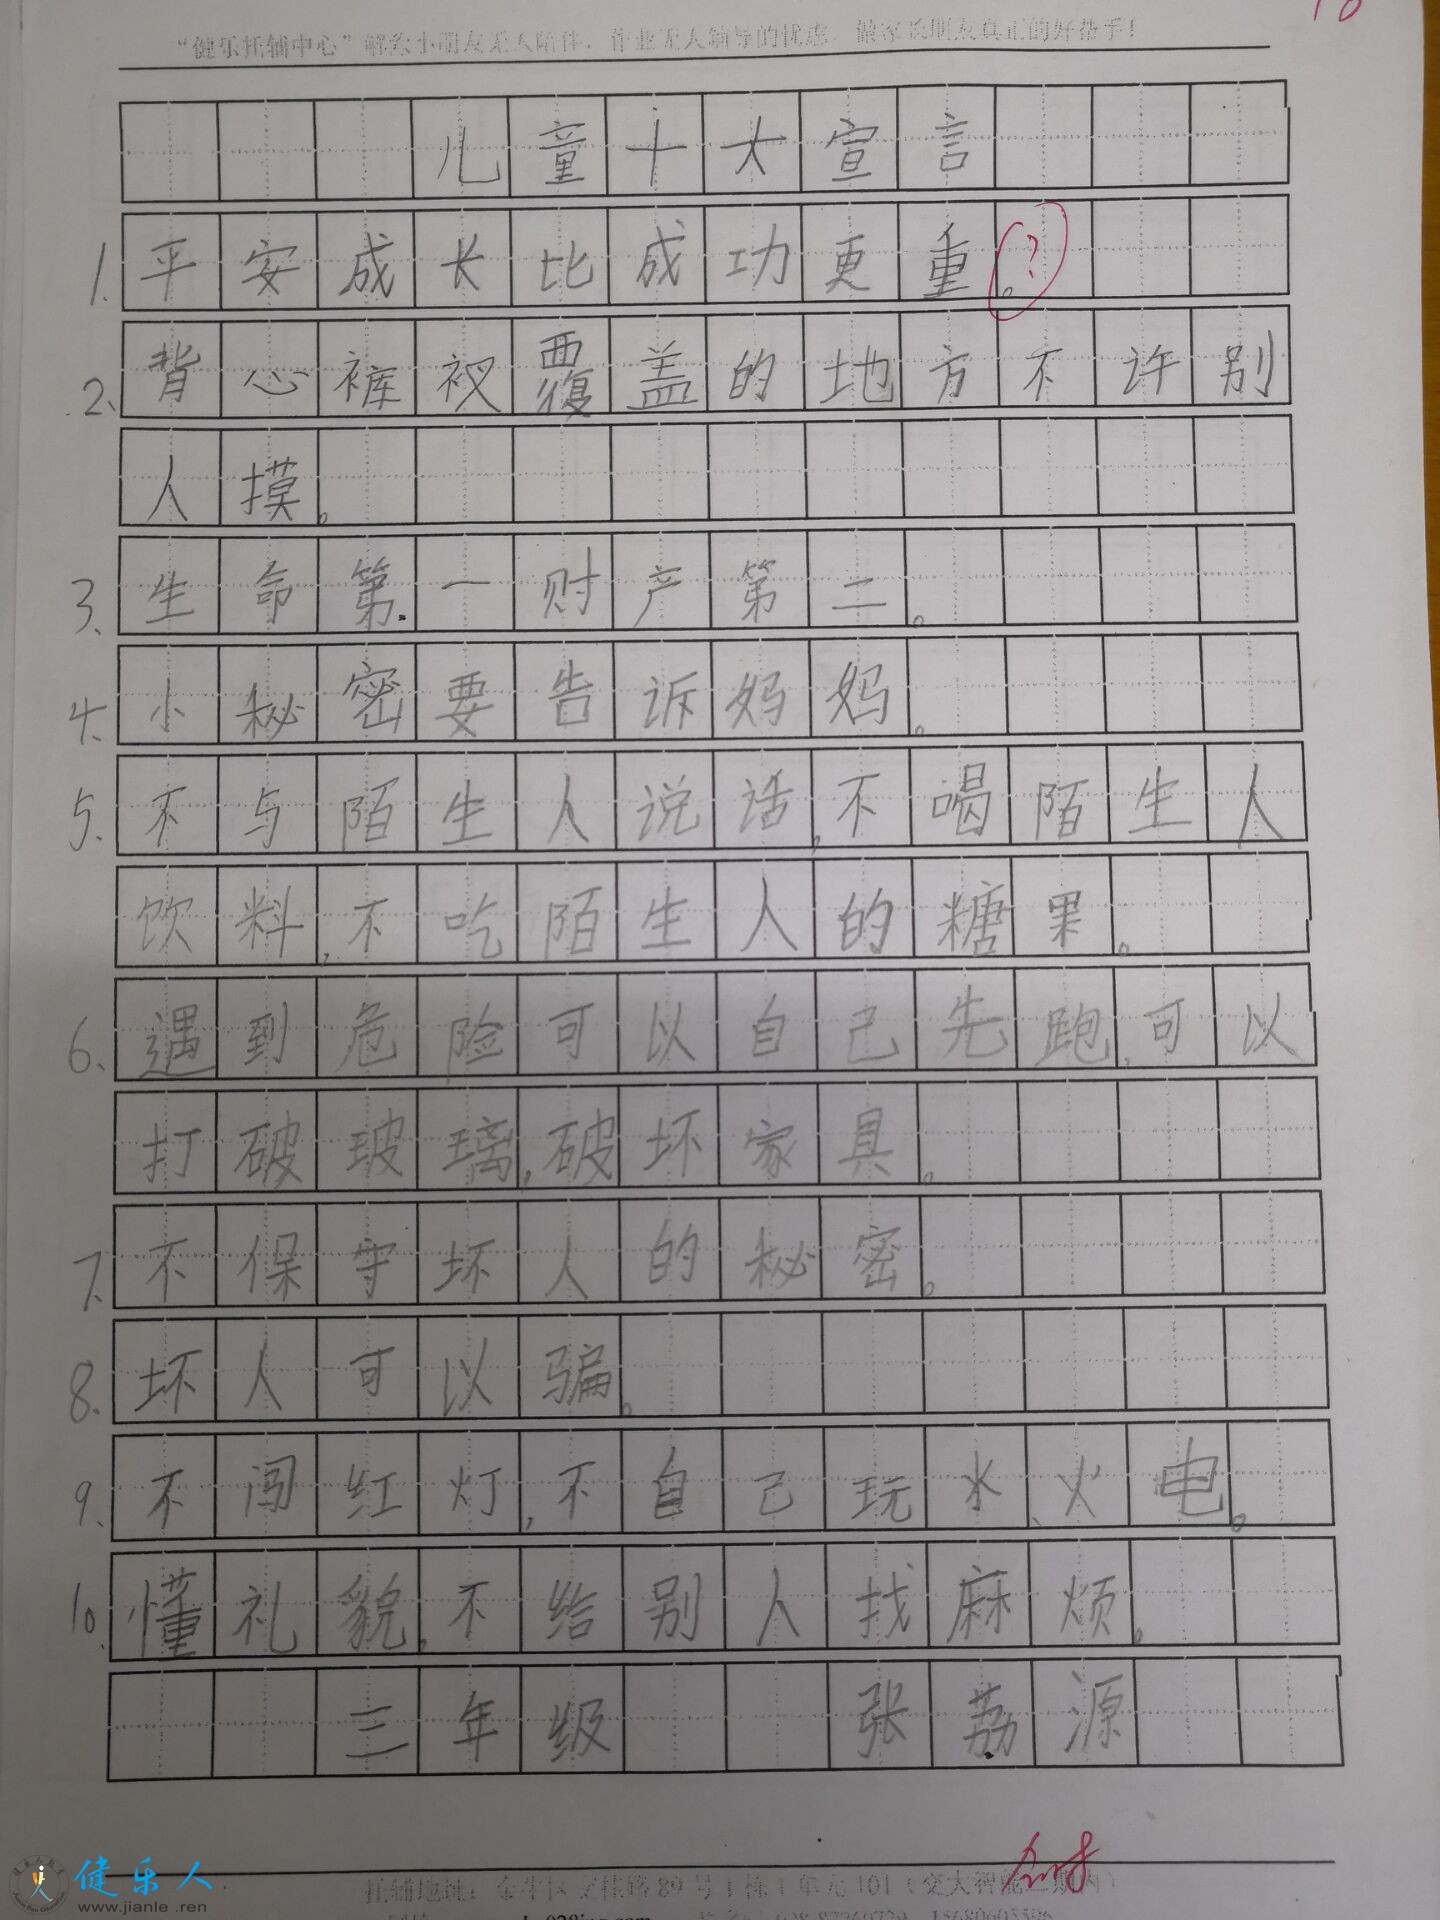 “健乐托辅中心”解除小朋友无人陪伴，作业无人辅导的忧虑，做家长朋友真正的好帮手！
儿童十大宣言
1.平安成长比成功更重。?
2、背心裤衩覆盖的地方不许别
人摸。
3、生命第一财产第二。
4、小秘密要告诉妈妈。
5、不与陌生人说话,不喝陌生人
饮料,不吃陌生人的糖果。
6、遇到危险可以自己先跑,可以
打破玻璃,破坏家具。
7、不保守坏人的秘密。
8、坏人可以骗。
9、不闯红灯,不自己玩水、火电。
10、懂礼貌,不给别人找麻烦。
三年级 张荔源
托辅地址：金牛区交桂路89号1栋1单元101（交大智能二期内）
健乐人
www.jianle.ren